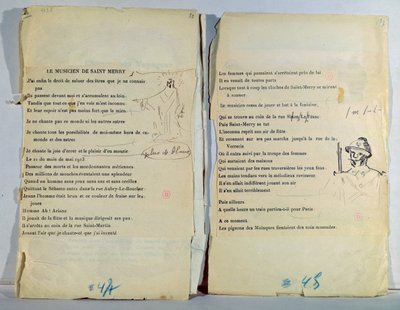 LE MUSICIEN DE SAINT MERRY
J'ai enfin le droit de saluer des êtres que je ne connais
pas
Ils passent devant moi et s'accumulent au loin
Tandis que tout ce que j'en vois m'est inconnu
Et leur espoir n'est pas moins fort que le mien
Je ne chante pas ce monde ni les autres astres
Je chante tous les possibilités de moi-même hors de ce
monde et des astres
Je chante la joie d'errer et le plaisir d'en mourir
Le 21 du mois de mai 1913
Passeur des morts et les mordonnantes mériennes
Des millions de mouches éventaient une splendeur
Quand un homme sans yeux sans nez et sans oreilles
Quittant le Sébasto entra dans la rue Aubry-Le-Boucher
Jeune l'homme était brun et ce couleur de fraise sur les
joues
Homme Ah! Ariane
Il jouait de la flûte et la musique dirigeait ses pas
Il s'arrêta au coin de la rue Saint-Martin
Jouant l'air que je chante et que j'ai inventé
# 4A
Les femmes qui passaient s'arrêtaient près de lui
Il en venait de toutes parts
Lorsque tout à coup les cloches de Saint-Merry se mirent
à sonner
Le musicien cessa de jouer et but à la fontaine
Qui se trouve au coin de la rue Simon-Le-Franc
Puis Saint-Merry se tut
L'inconnu reprit son air de flûte
Et revenant sur ses pas marcha jusqu'à la rue de la
Verrerie
Où il entra suivi par la troupe des femmes
Qui sortaient des maisons
Qui venaient par les rues traversières les yeux fous
Les mains tendues vers le mélodieux ravisseur
Il s'en allait indifférent jouant son air
Il s'en allait terriblement
Puis ailleurs
A quelle heure un train partira-t-il pour Paris
A ce moment
Les pigeons des Moluques fientaient des noix muscades
# 4B